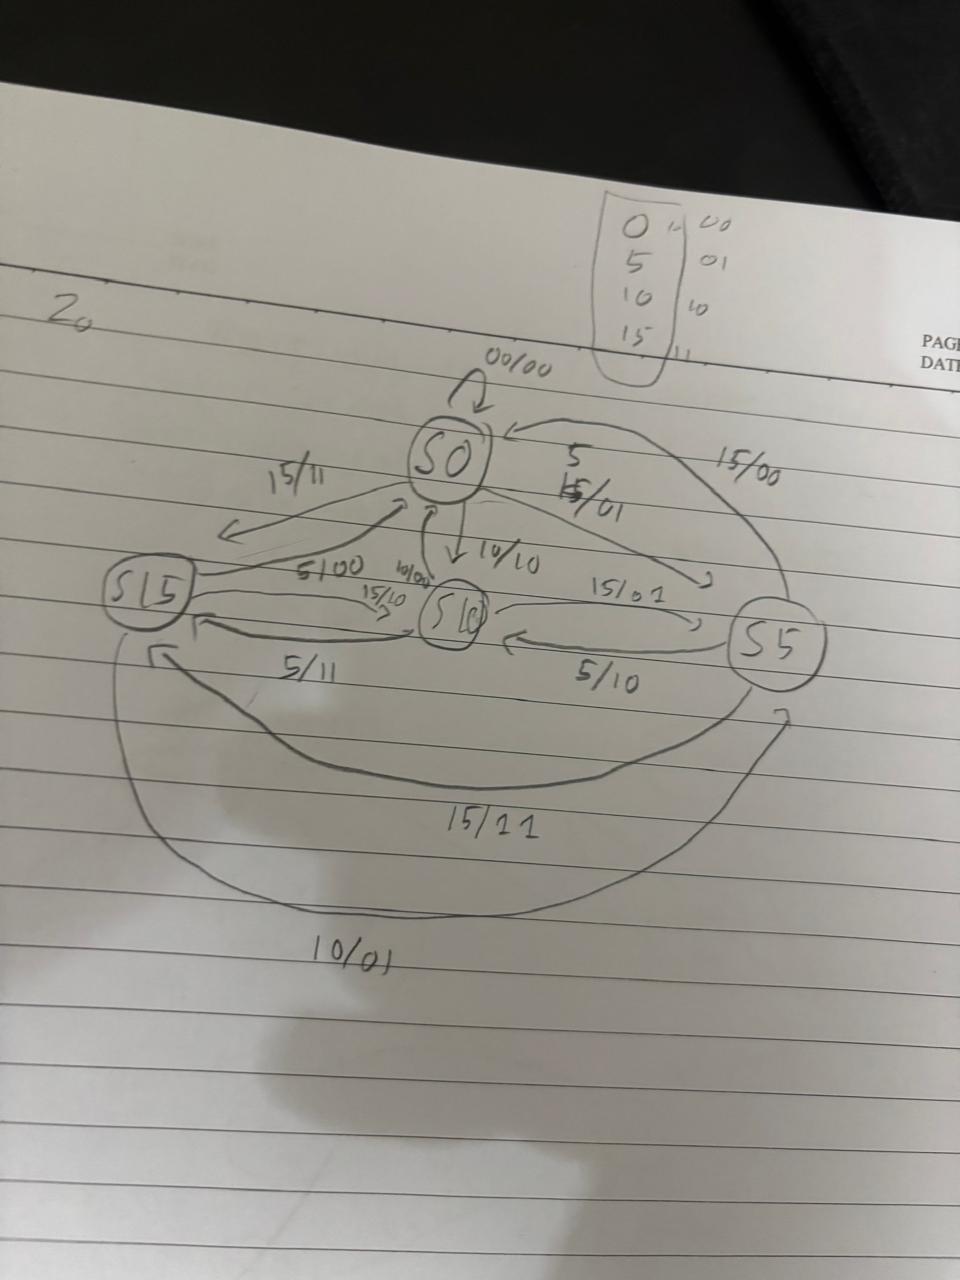 0 00
5 01
10 10
15 11
PAGE
DATE
2.
00/00
S0
15/11
5
15/01
15/00
10/10
5/00
10/00
15/10
15/01
S15
S10
S5
5/11
5/10
15/11
10/01